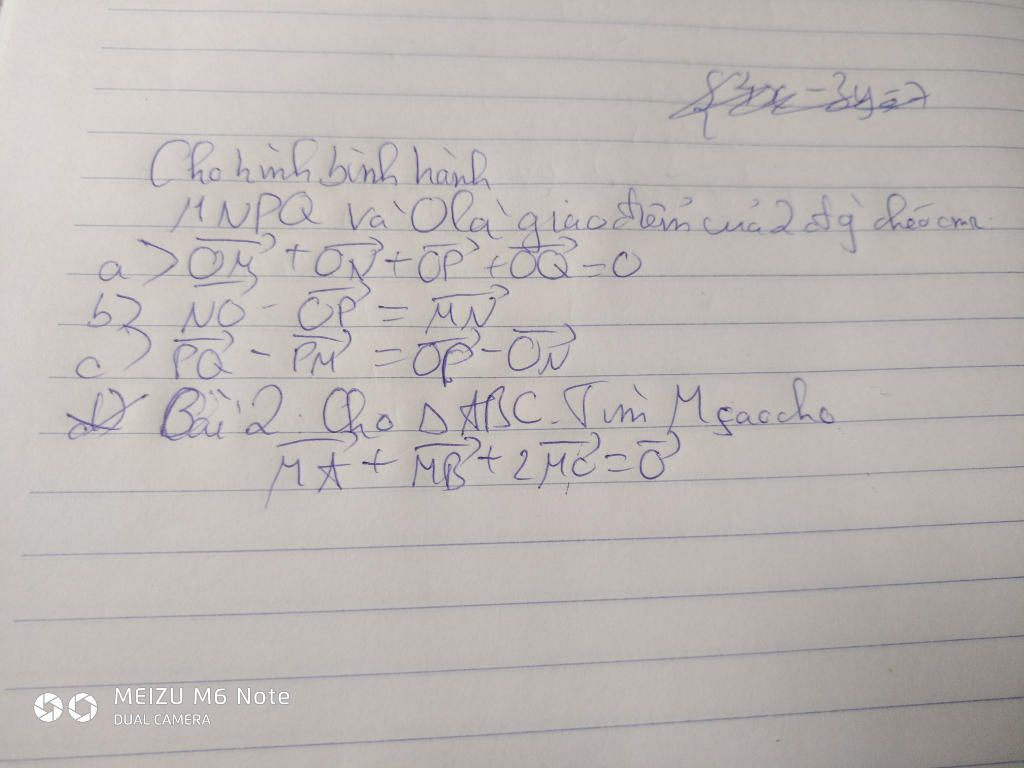 {3x - 3y = 7
Cho hình bình hành
MNPQ và O là giao điểm của 2 đg chéo cmr
a> OM + ON + OP + OQ = 0
b> NO - OP = MN
c> PQ - PM = OP - ON
d> Bài 2: Cho Δ ABC. Tìm M saocho
MA + MB + 2MC = 0
MEIZU M6 Note
DUAL CAMERA